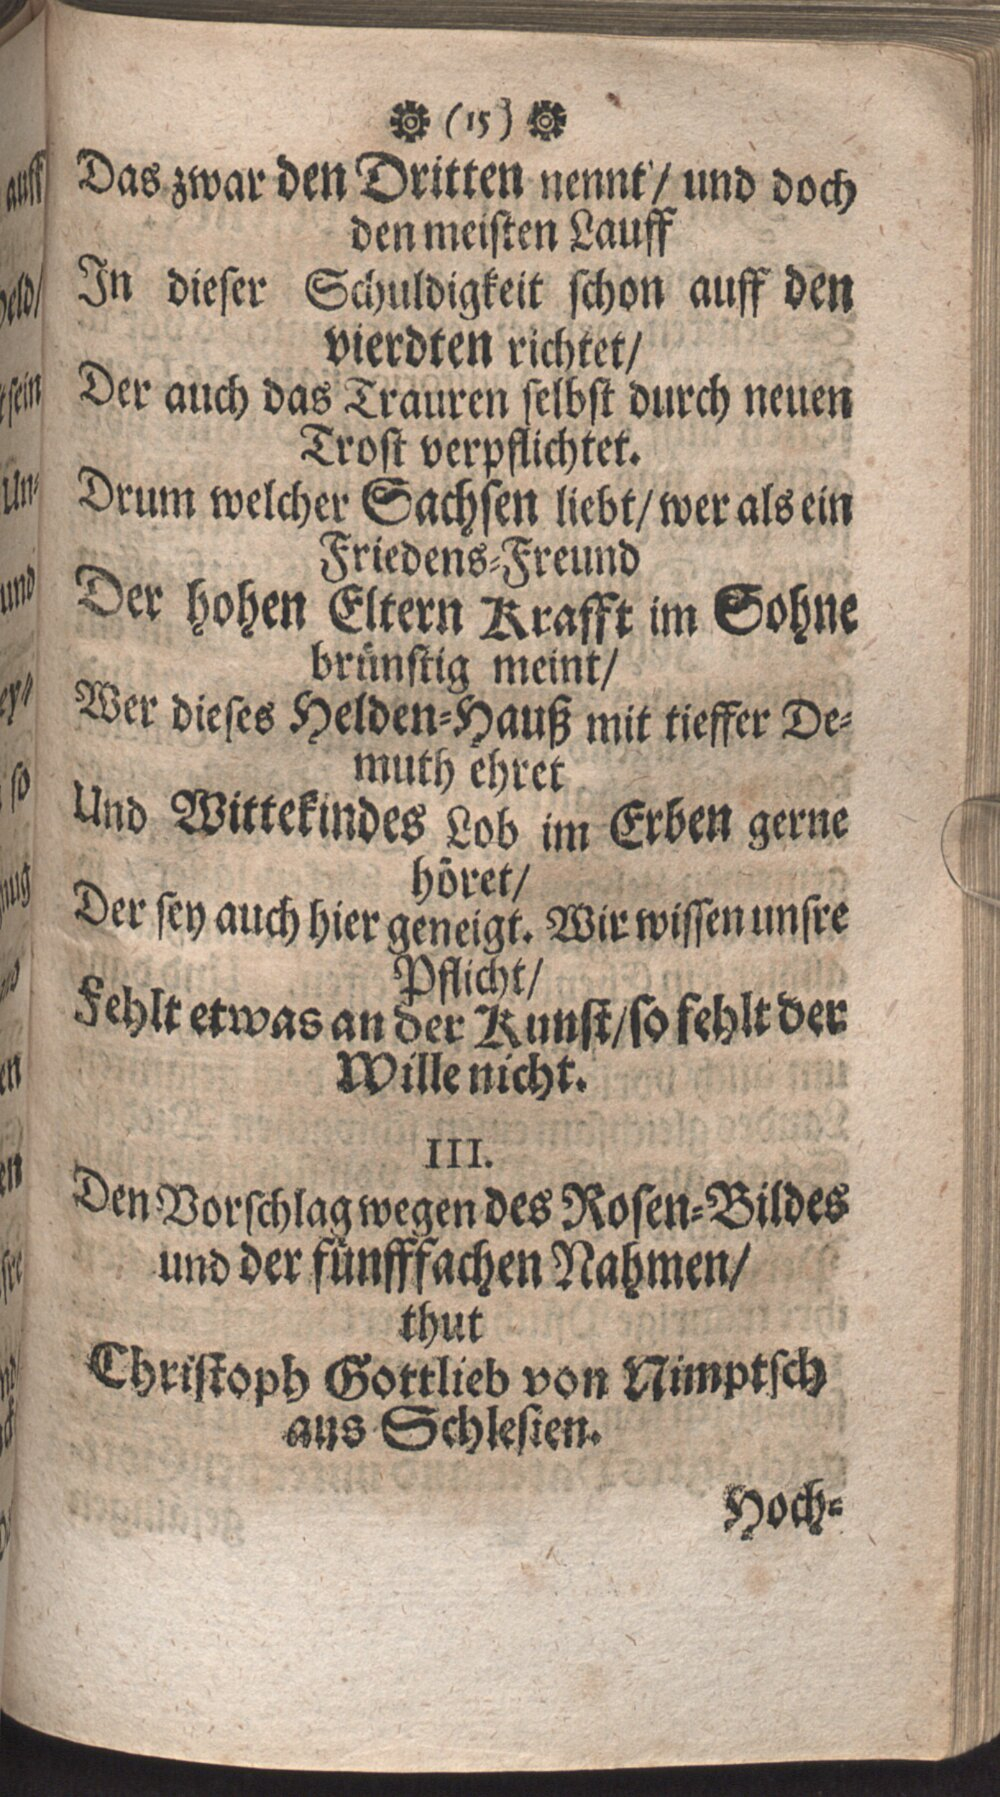 (15)
Das zwar den Dritten nennt/ und doch
den meisten Lauff
In dieser Schuldigkeit schon auff den
vierdten richtet/
Der auch das Trauren selbst durch neuen
Trost verpflichtet.
Drum welcher Sachsen liebt/ wer als ein
Friedens-Freund
Der hohen Eltern Krafft im Sohne
brünstig meint/
Wer dieses Helden-Hauß mit tieffer De-
muth ehret
Und Wittekindes Lob im Erben gerne
höret/
Der sey auch hier geneigt. Wir wissen unsre
Pflicht/
Fehlt etwas an der Kunst/ so fehlt der
Wille nicht.
III.
Den Vorschlag wegen des Rosen-Bildes
und der fünfffachen Nahmen/
thut
Christoph Gottlieb von Nimptsch
aus Schlesien.
Hoch-